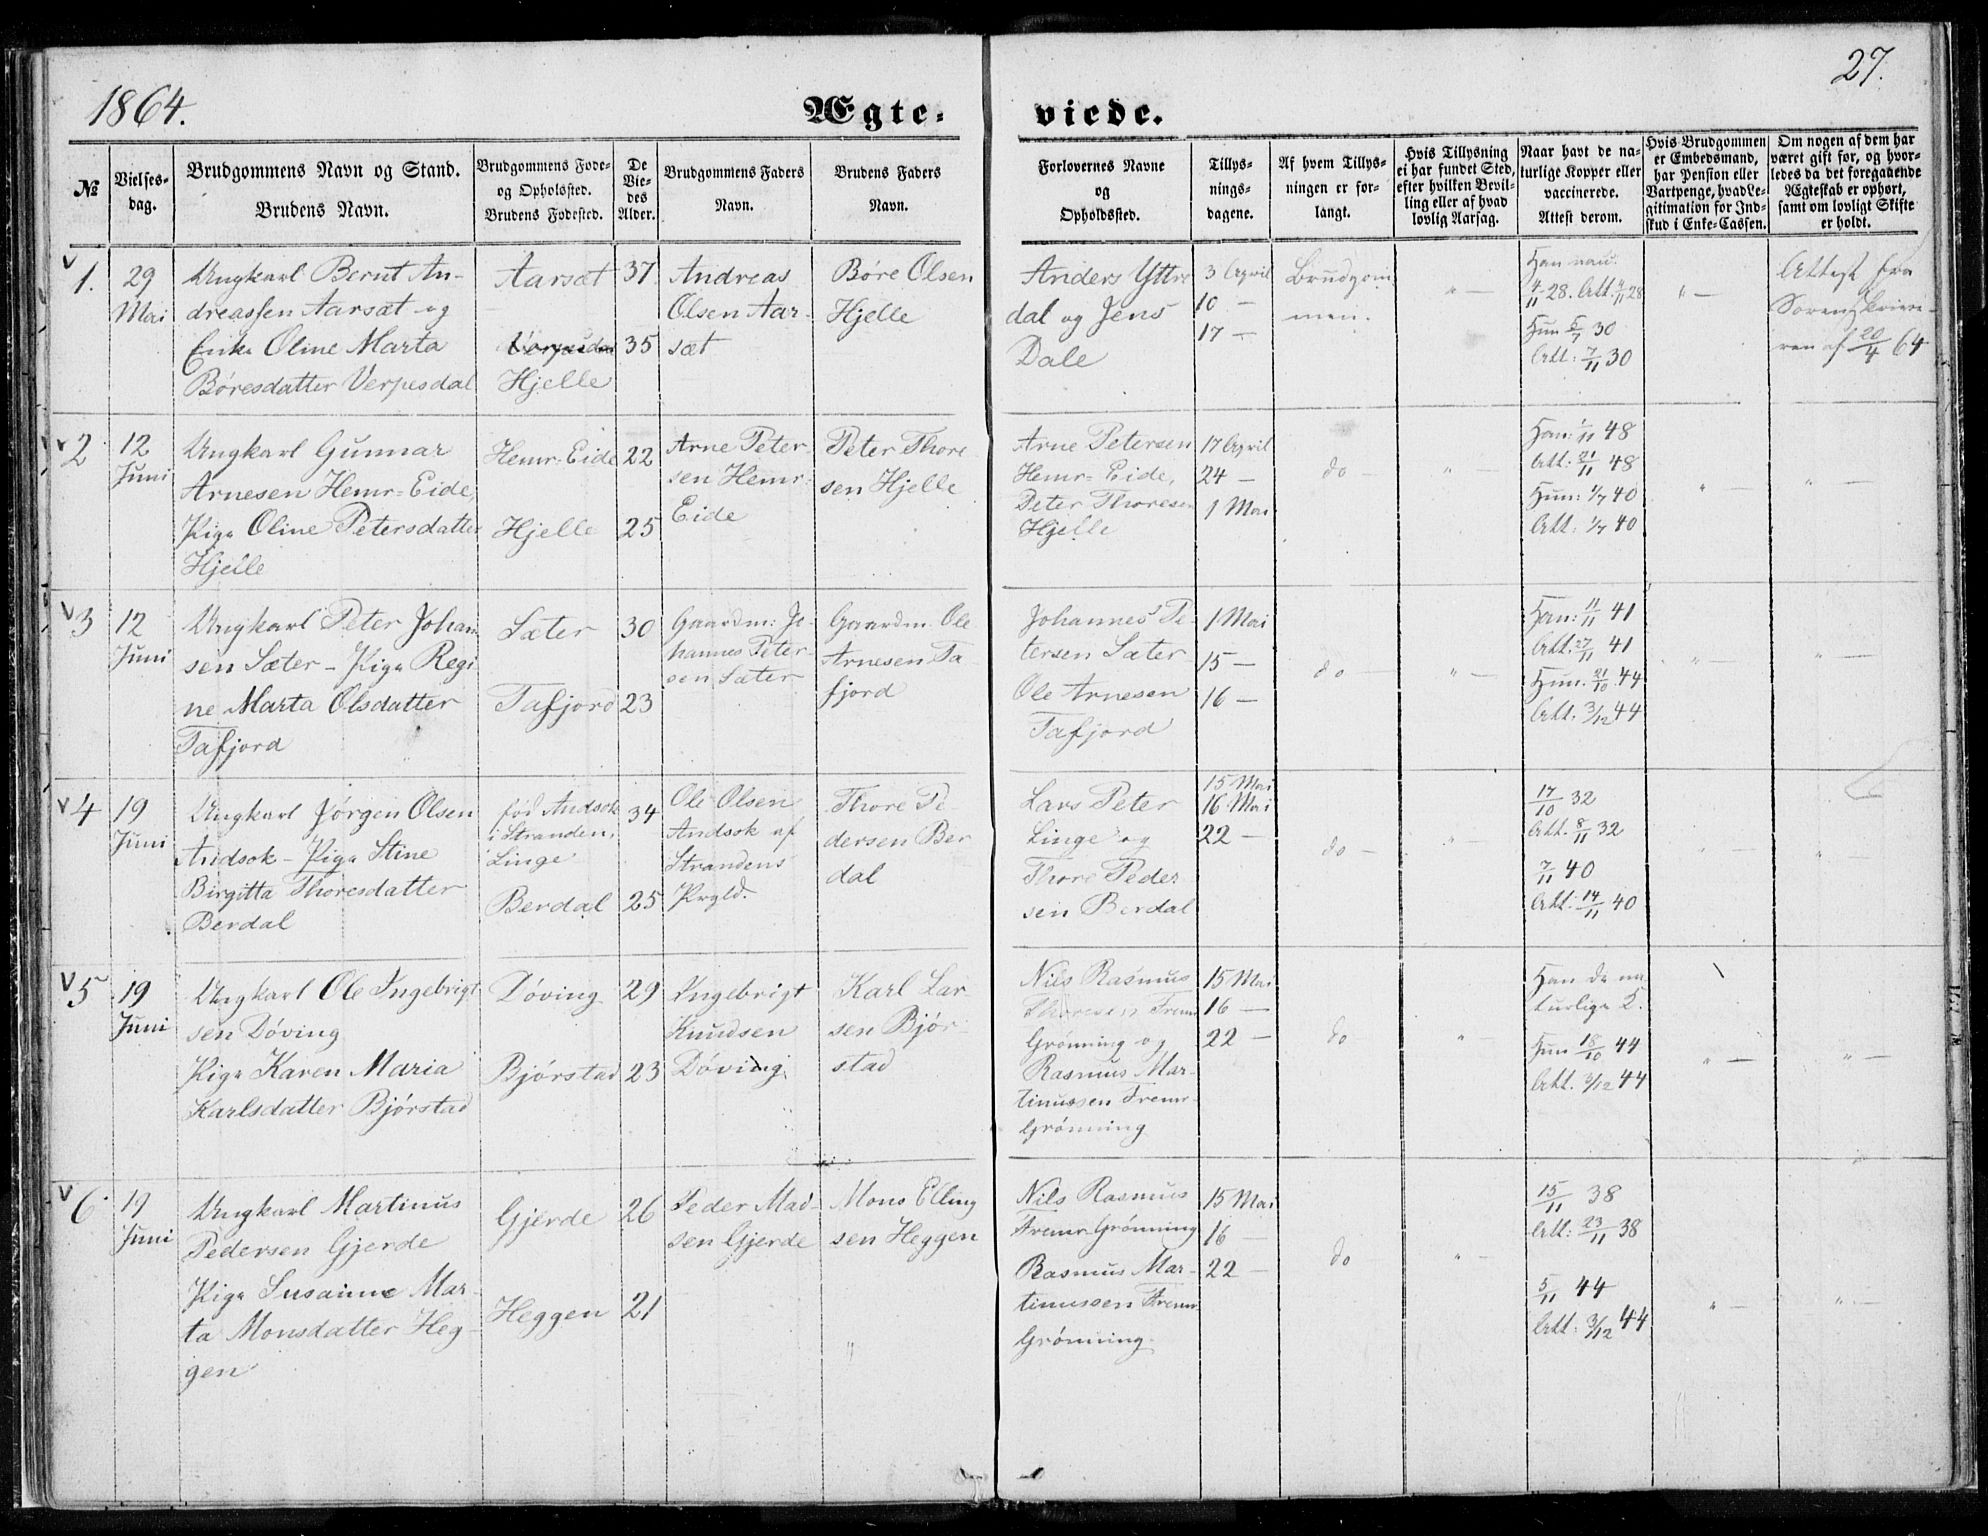 1864.
27.
Ægte-
viede.
№
Vielses-
dag.
Brudgommens Navn og Stand.
Brudens Navn.
Brudgommens Føde-
og Opholssted.
Brudens Fødested.
De
Vie-
des
Alder.
Brudgommens Faders
Navn.
Brudens Faders
Navn.
Forlovernes Navne
og
Opholdssted.
Tillys-
nings-
dagene.
Af hvem Tillys-
ningen er for-
langt.
Hvis Tillysning
ei har fundet Sted,
efter hvilken Bevil-
ling eller af hvad
lovlig Aarsag.
Naar havt de na-
turlige Kopper eller
vaccinerede.
Attest derom.
Hvis Brudgommen
er Embedsmand,
har Pension eller
Vartpenge, hvad Le-
gitimation for Ind-
skud i Enke-Cassen.
Om nogen af dem har
været gift før, og hvor-
ledes da det foregaaende
Ægteskab er ophørt,
samt om lovligt Skifte
er holdt.
1.
29
Mai
Ungkarl Bernt An-
dreassen Aarsæt og
Enke Oline Marta
Børesdatter Verpesdal
Aarsæt
Hjelle
37
35
Andreas
Olsen Aar-
sæt
Børe Olsen
Hjelle
Anders Yttre
dal og Jens
Dale
3 April
10 —
17 —
Brudgom
men.
" —
Han
4/11 28. Att. 4/11 28
Hun 5/7 30
Att: 7/11 30
" —
Attest fra
Sorenskrive-
ren af 20/4 64
2
12
Juni
Ungkarl Gunnar
Arnesen Hemr=Eide,
Pige Oline Petersdatter
Hjelle
Hemr=Eide
Hjelle
22
25
Arne Peter
sen Hemr=
Eide
Peter Thore
sen Hjelle
Arne Petersen
Hemr=Eide,
Peter Thoresen
Hjelle
17 April
24 —
1 Mai
do —
" —
Han: 1/11 48
Att: 21/11 48
Hun: 1/7 40
Att: 1/7 40
" —
" —
3
12
Juni
Ungkarl Peter Johan
sen Sæter – Pige Regi
ne Marta Olsdatter
Tafjord
Sæter
Tafjord
30
23
Gaardm: Jo
hannes Peter-
sen Sæter
Gaardm. Ole
Arnesen Ta
fjord
Johannes Pe-
tersen Sæter
Ole Arnesen
Tafjord
1 Mai
15 —
16 —
do —
" —
Han: 11/11 41
Att. 27/11 41
Hun. 21/10 44
Att: 3/12 44
" —
" —
4
19
Juni
Ungkarl Jørgen Olsen
Andsok – Pige Stine
Birgitta Thoresdatter
Berdal
fød Andsok
i Stranden,
Linge
Berdal
34
25
Ole Olsen
Andsok af
Strandens
Prgld.
Thore Pe
dersen Ber
dal
Lars Peter
Linge og
Thore Peder
sen Berdal
15 Mai
16 Mai
22 —
do —
" —
17/10 32
Att. 8/11 32
7/11 40
Att: 14/11 40
" —
" —
5
19
Juni
Ungkarl Ole Ingebrigt
sen Døving
Pige Karen Maria
Karlsdatter Bjørstad
Døving
Bjørstad
29
23
Ingebrigt
Knudsen
Døving
Karl Lar-
sen Bjør-
stad
Nils Rasmus
Thoresen Fremr
Grønning og
Rasmus Mar-
tinussen Fremr
Grønning
15 Mai
16 —
22 —
do
"
Han de na
turlige K.
Hun 18/10 44
Att. 3/12 44
" —
" —
6
19
Juni
Ungkarl Martinus
Pedersen Gjerde
Pige Susanne Mar-
ta Monsdatter Heg-
gen
Gjerde
Heggen
26
21
Peder Mad-
sen Gjerde
Mons Elling
sen Heggen
Nils Rasmus
Fremr Grønning
Rasmus Mar-
tinussen Fremr
Grønning
15 Mai
16 —
22 —
do
" —
15/11 38
Att: 23/11 38
5/11 44
Att: 3/12 44
" —
" —